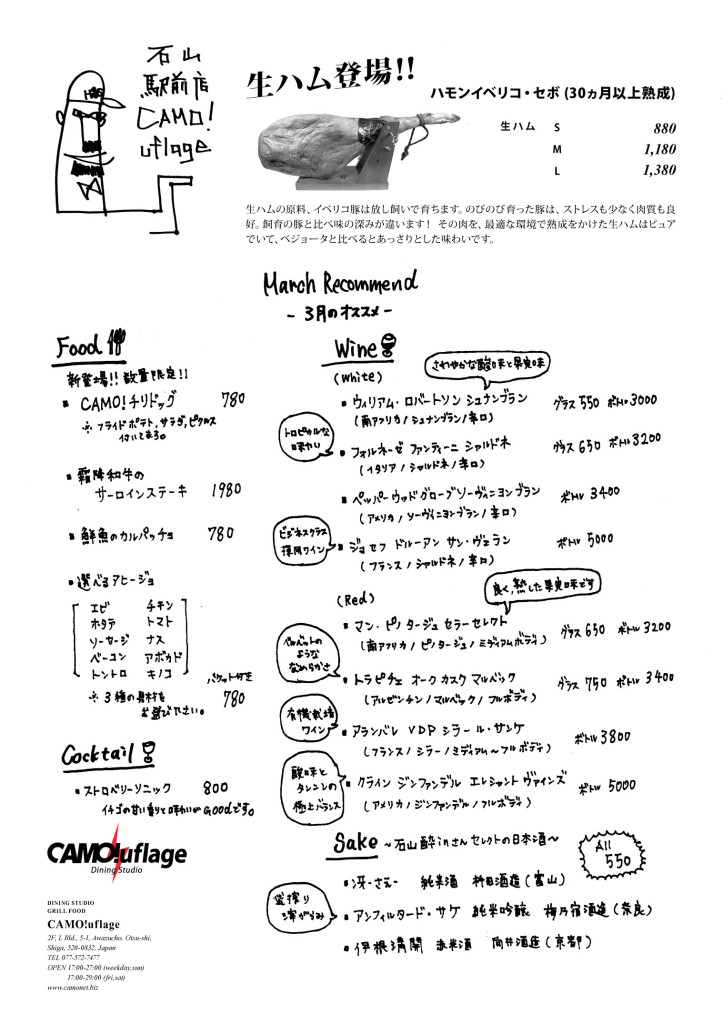 石山
駅前店
CAMO!
uflage
生ハム登場!!
ハモンイベリコ・セボ (30ヵ月以上熟成)
生ハム S 880
M 1,180
L 1,380
生ハムの原料、イベリコ豚は放し飼いで育ちます。のびのび育った豚は、ストレスも少なく肉質も良
好。飼育の豚と比べ味の深みが違います! その肉を、最適な環境で熟成をかけた生ハムはピュア
でいて、ベジョータと比べるとあっさりとした味わいです。
March Recommend
- 3月のオススメ -
Food
新登場!! 数量限定!!
CAMO!チリドッグ 780
※ フライドポテト、サラダ、ピクルス
付いてます。
霜降和牛の
サーロインステーキ 1980
鮮魚のカルパッチョ 780
選べるアヒージョ
エビ チキン
ホタテ トマト
ソーセージ ナス
ベーコン アボカド
トントロ キノコ
バケット付き
※ 3種の具材を
お選び下さい。 780
Cocktail
ストロベリーソニック 800
イチゴの甘い香りと味わいがGoodです。
Wine
(white)
さわやかな酸味と果実味
ウィリアム・ロバートソン シュナンブラン グラス 550 ボトル 3000
(南アフリカ / シュナンブラン / 辛口)
トロピカルな
味わい
フォルネーゼ ファンティーニ シャルドネ グラス 650 ボトル 3200
(イタリア / シャルドネ / 辛口)
ペッパーウッドグローブソーヴィニヨンブラン ボトル 3400
(アメリカ / ソーヴィニヨンブラン / 辛口)
ビジネスクラス
採用ワイン
ジョセフ ドルーアン サン・ヴェラン ボトル 5000
(フランス / シャルドネ / 辛口)
(Red)
良く熟した果実味です
マン・ピノタージュ セラーセレクト グラス 650 ボトル 3200
(南アフリカ / ピノタージュ / ミディアムボディ)
ベルベットの
ような
なめらかさ
トラピチェ オーク カスク マルベック グラス 750 ボトル 3400
(アルゼンチン / マルベック / フルボディ)
有機栽培
ワイン
アランバレ VDP シラー ル・サンケ ボトル 3800
(フランス / シラー / ミディアム〜フルボディ)
酸味と
タンニンの
極上バランス
クライン ジンファンデル エンシェント ヴァインズ ボトル 5000
(アメリカ / ジンファンデル / フルボディ)
Sake 〜石山酔inさんセレクトの日本酒〜
All
550
冴・さえー 純米酒 桝田酒造 (富山)
袋搾り
澤がらみ
アンフィルタード・サケ 純米吟醸 梅乃宿酒造 (奈良)
伊根満開 赤米酒 向井酒造 (京都)
CAMO!uflage
Dining Studio
DINING STUDIO
GRILL FOOD
CAMO!uflage
2F, L Bld., 5-1, Awazucho, Otsu-shi,
Shiga, 520-0832, Japan
TEL 077-572-7477
OPEN 17:00-27:00 (weekday,sun)
17:00-29:00 (fri,sat)
www.camonet.biz